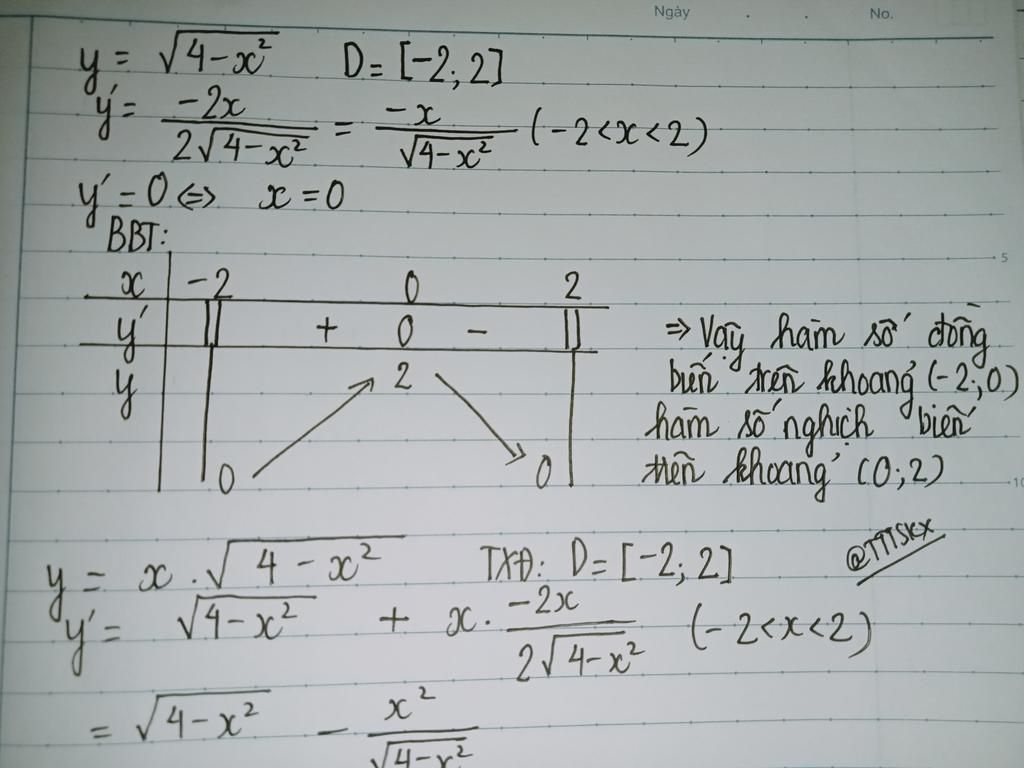 Ngày . . No.
y = √(4-x²) D = [-2; 2]
y' = -2x / 2√(4-x²) = -x / √(4-x²) (-2<x<2)
y' = 0 <=> x = 0
BBT:
x -2 0 2
y' || + 0 - ||
y 2
0 0
=> Vậy hàm số đồng
biến trên khoảng (-2; 0)
hàm số nghịch biến
trên khoảng (0; 2)
5
10
@TTTSKX
y = x . √(4-x²) TXĐ: D = [-2; 2]
y' = √(4-x²) + x . -2x / 2√(4-x²) (-2<x<2)
= √(4-x²) - x² / √(4-x²)